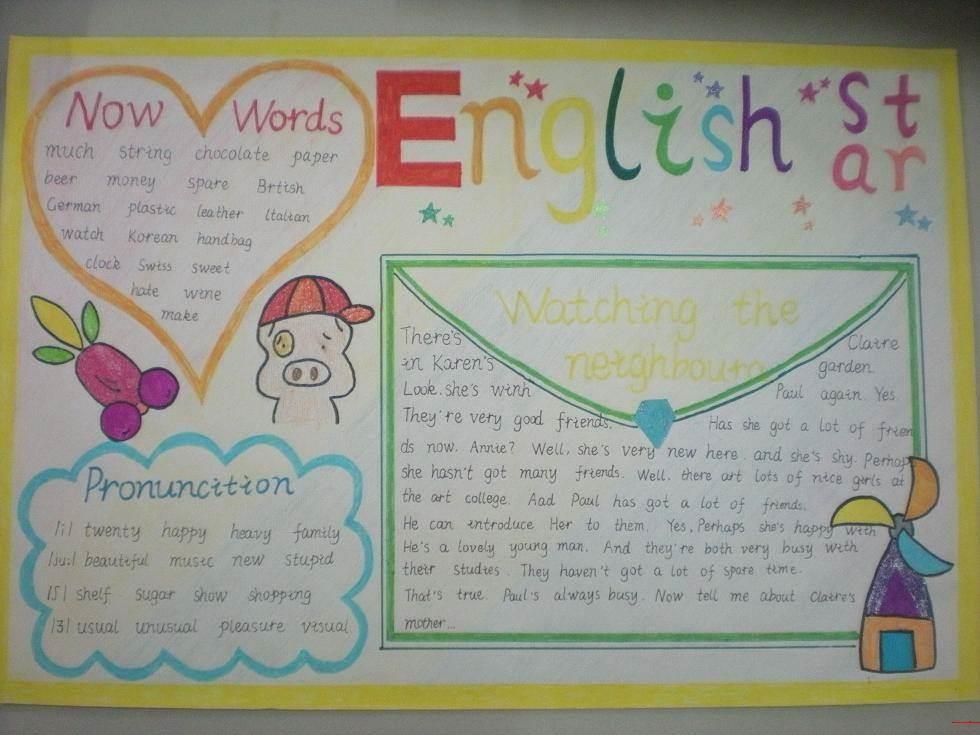 English St
ar
Now Words
much string chocolate paper
beer money spare Brtish
German plastic leather Italian
watch Korean handbag
clock Swiss sweet
hate wine
make
Pronuncition
/i/ twenty happy heavy family
/ju:/ beautiful music new stupid
/ʃ/ shelf sugar show shopping
/ʒ/ usual unusual pleasure visual
Watching the
neighbours
There's Claire
in Karen's garden.
Look. she's winh Paul again. Yes.
They're very good friends. Has she got a lot of frien
ds now. Annie? Well, she's very new here. and she's shy. Perhap
she hasn't got many friends. Well, there art lots of nice girls at
the art college. Aad Paul has got a lot of friends.
He can introduce Her to them. Yes, Perhaps she's happy with
He's a lovely young man. And they're both very busy with
their studies. They haven't got a lot of spare time.
That's true. Paul's always busy. Now tell me about Claire's
mother...